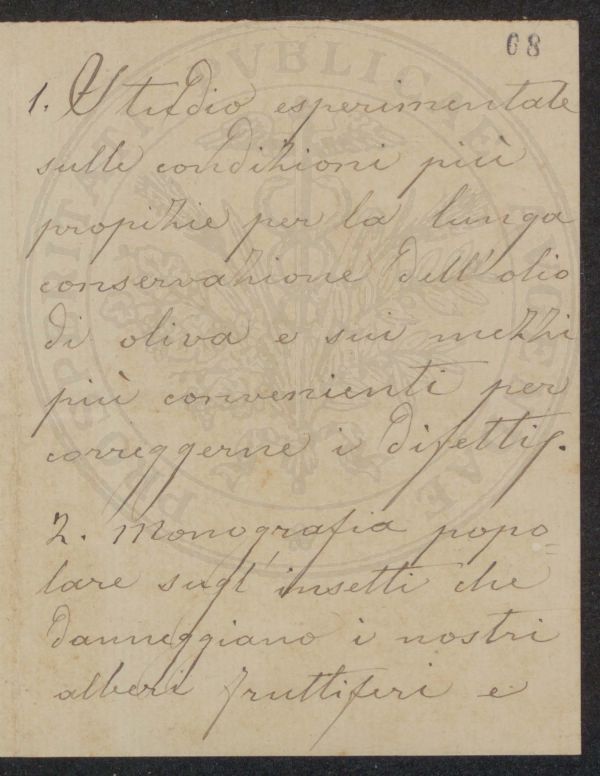 68
PROSPERITATI PVBLICAE AVGENDAE
1. Studio esperimentale
sulle condizioni più
propizie per la lunga
conservazione dell'olio
di oliva e sui mezzi
più convenienti per
correggerne i difetti.
2. Monografia popo=
lare sugl'insetti che
danneggiano i nostri
alberi fruttiferi e